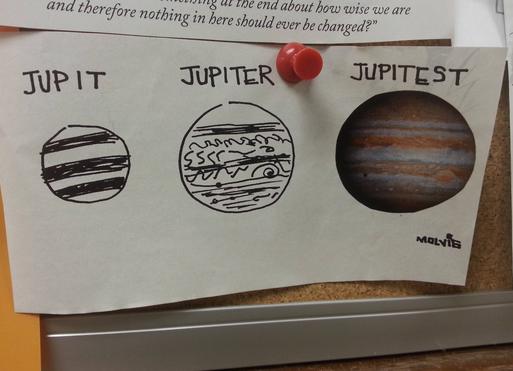 at the end about how wise we are
and therefore nothing in here should ever be changed?”
JUPIT JUPITER JUPITEST
MOLVIG